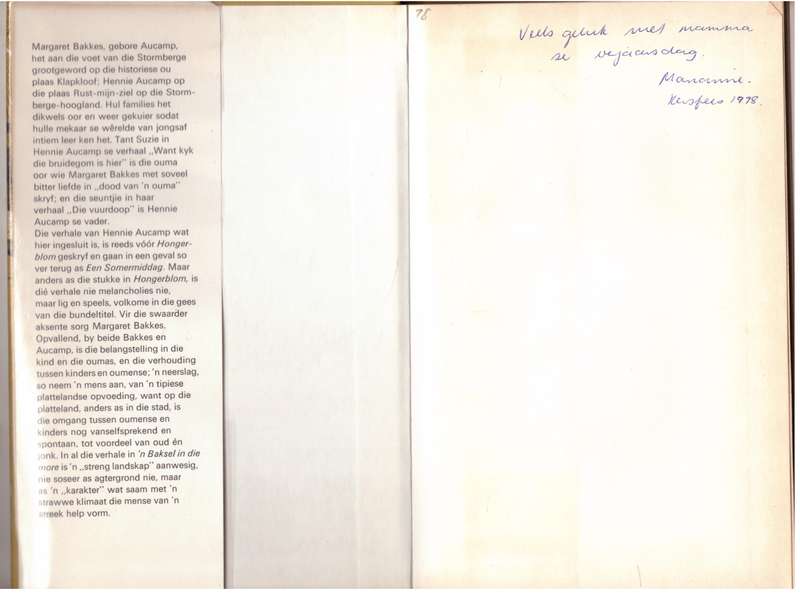 Margaret Bakkes, gebore Aucamp,
het aan die voet van die Stormberge
grootgeword op die historiese ou
plaas Klapkloof; Hennie Aucamp op
die plaas Rust-mijn-ziel op die Storm-
berge-hoogland. Hul families het
dikwels oor en weer gekuier sodat
hulle mekaar se wêrelde van jongsaf
intiem leer ken het. Tant Suzie in
Hennie Aucamp se verhaal „Want kyk
die bruidegom is hier" is die ouma
oor wie Margaret Bakkes met soveel
bitter liefde in „dood van 'n ouma"
skryf; en die seuntjie in haar
verhaal „Die vuurdoop" is Hennie
Aucamp se vader.
Die verhale van Hennie Aucamp wat
hier ingesluit is, is reeds vóór Honger-
blom geskryf en gaan in een geval so
ver terug as Een Somermiddag. Maar
anders as die stukke in Hongerblom, is
dié verhale nie melancholies nie,
maar lig en speels, volkome in die gees
van die bundeltitel. Vir die swaarder
aksente sorg Margaret Bakkes.
Opvallend, by beide Bakkes en
Aucamp, is die belangstelling in die
kind en die oumas, en die verhouding
tussen kinders en oumense; 'n neerslag,
so neem 'n mens aan, van 'n tipiese
plattelandse opvoeding, want op die
platteland, anders as in die stad, is
die omgang tussen oumense en
kinders nog vanselfsprekend en
spontaan, tot voordeel van oud én
jonk. In al die verhale in 'n Baksel in die
more is 'n „streng landskap" aanwesig,
nie soseer as agtergrond nie, maar
as 'n „karakter" wat saam met 'n
strawwe klimaat die mense van 'n
streek help vorm.
78
Veels geluk met mamma
se verjaarsdag.
Mariannie.
Kersfees 1978.